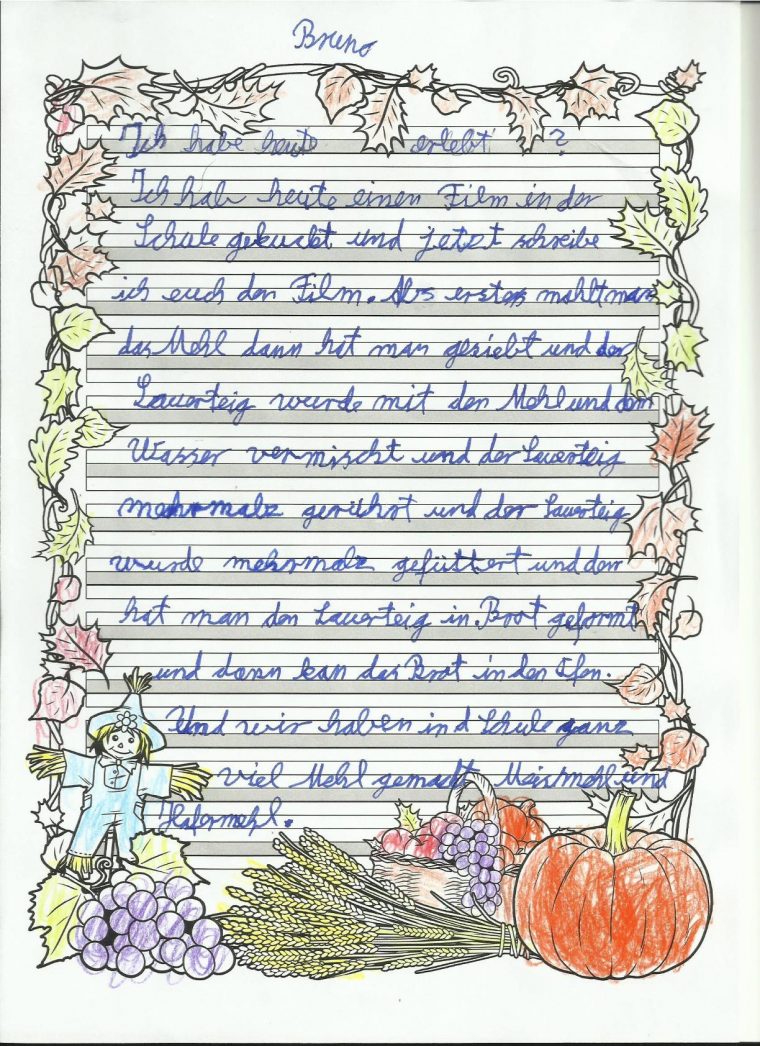 Bruno
Ich habe heute erlebt ?
Ich hab heute einen Film in der
Schule gekuckt und jetzt schreibe
ich euch den Film. Als erstes mahlt man
das Mehl dann hat man gesiebt und der
Sauerteig wurde mit den Mehl und dem
Wasser vermischt und der Sauerteig
mehrmalz gerührt und der Sauerteig
wurde mehrmalz gefüttert und dan
hat man den Sauerteig in Brot geformt
und dann kan das Brot in den Ofen.
Und wir haben in d Schule ganz
viel Mehl gemacht Maismehl und
Hafermehl.